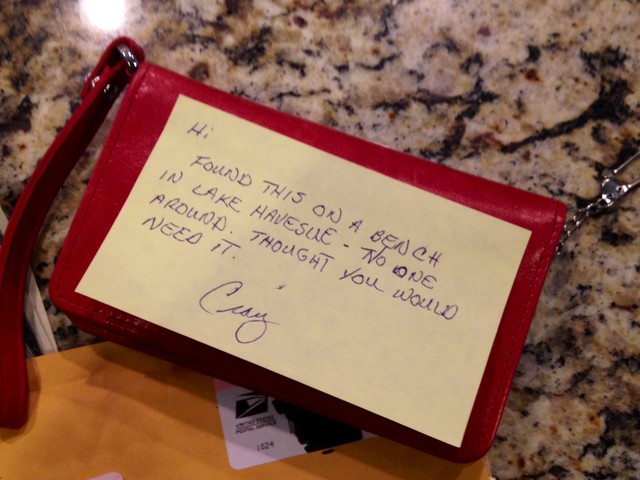 Hi
FOUND THIS ON A BENCH
IN LAKE HAVESUE - NO ONE
AROUND. THOUGHT YOU WOULD
NEED IT.
Craig
UNITED STATES
POSTAL SERVICE
1024